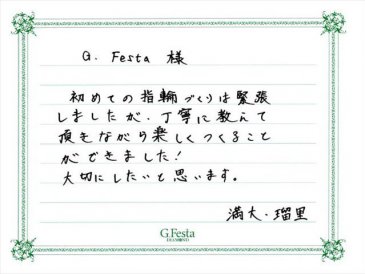 G. Festa 様
初めての指輪づくりは緊張
しましたが、丁寧に教えて
頂きながら楽しくつくること
ができました!
大切にしたいと思います。
満大・瑠里
G.Festa
DIAMOND